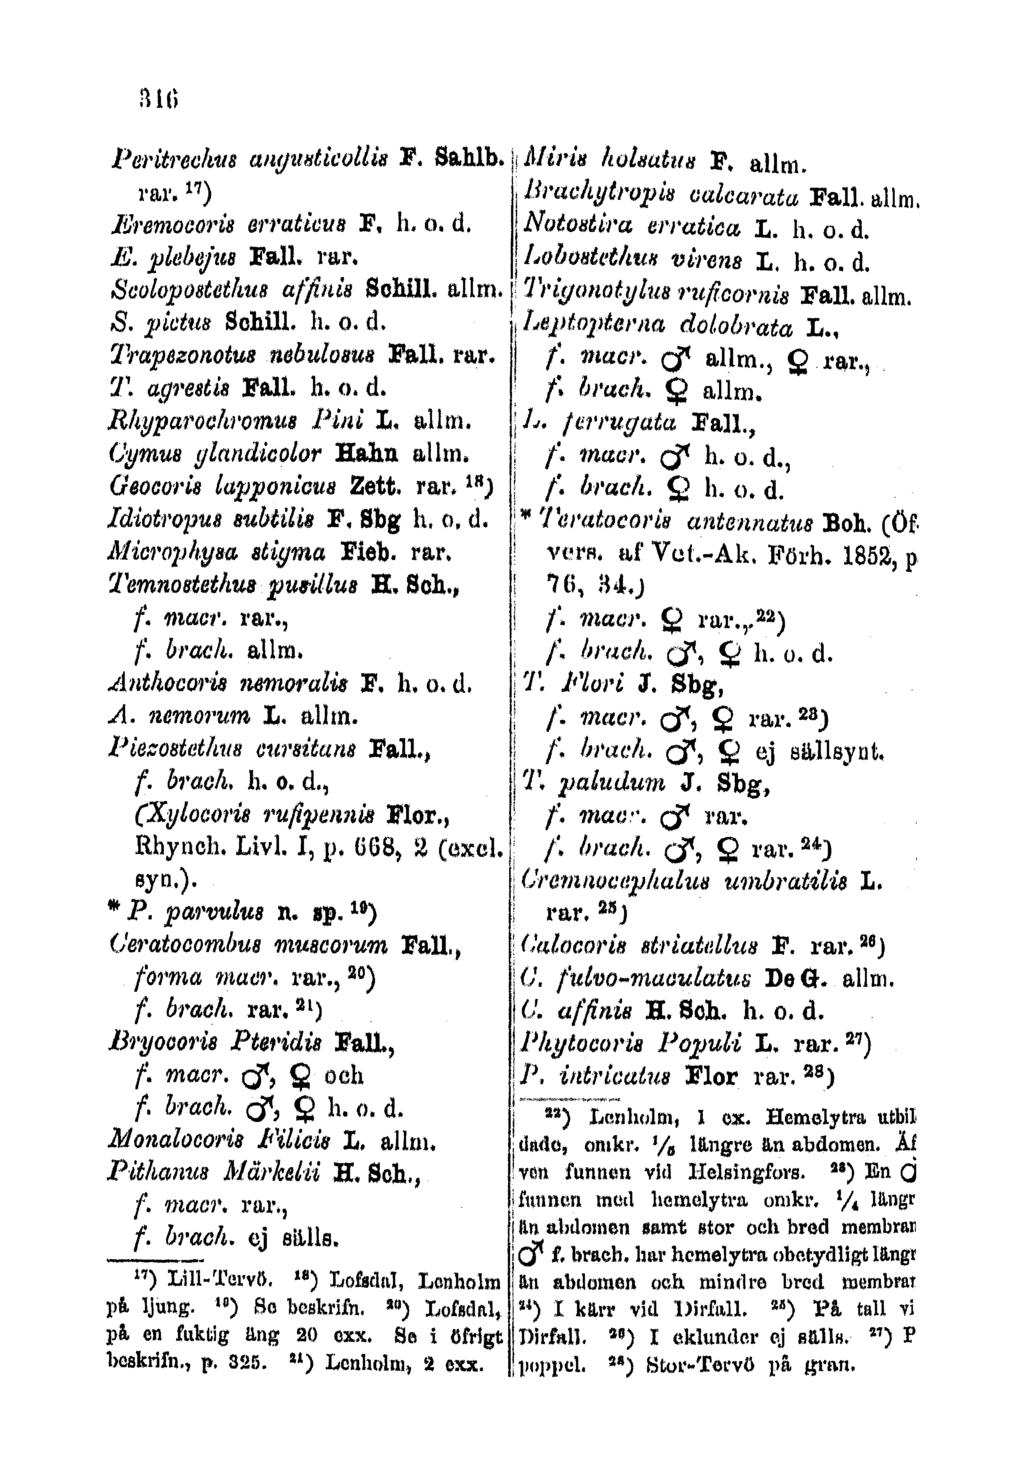 316
Peritrechus angusticollis F. Sahlb.
rar. ¹⁷)
Eremocoris erraticus F. h. o. d.
E. plebejus Fall. rar.
Scolopostethus affinis Schill. allm.
S. pictus Schill. h. o. d.
Trapezonotus nebulosus Fall. rar.
T. agrestis Fall. h. o. d.
Rhyparochromus Pini L. allm.
Cymus glandicolor Hahn allm.
Geocoris lapponicus Zett. rar. ¹⁸)
Idiotropus subtilis F. Sbg h. o. d.
Microphysa stigma Fieb. rar.
Temnostethus pusillus H. Sch.,
f. macr. rar.,
f. brach. allm.
Anthocoris nemoralis F. h. o. d.
A. nemorum L. allm.
Piezostethus cursitans Fall.,
f. brach. h. o. d.,
(Xylocoris rufipennis Flor.,
Rhynch. Livl. I, p. 668, 2 (excl.
syn.).
* P. parvulus n. sp. ¹⁹)
Ceratocombus muscorum Fall.,
forma macr. rar., ²⁰)
f. brach. rar. ²¹)
Bryocoris Pteridis Fall.,
f. macr. ♂, ♀ och
f. brach. ♂, ♀ h. o. d.
Monalocoris Filicis L. allm.
Pithanus Märkelii H. Sch.,
f. macr. rar.,
f. brach. ej sälls.
¹⁷) Lill-Tervö. ¹⁸) Lofsdal, Lenholm
på ljung. ¹⁹) Se beskrifn. ²⁰) Lofsdal,
på en fuktig äng 20 exx. Se i öfrigt
beskrifn., p. 325. ²¹) Lenholm, 2 exx.
Miris holsatus F. allm.
Brachytropis calcarata Fall. allm.
Notostira erratica L. h. o. d.
Lobostethus virens L. h. o. d.
Trigonotylus ruficornis Fall. allm.
Leptopterna dolobrata L.,
f. macr. ♂ allm., ♀ rar.,
f. brach. ♀ allm.
L. ferrugata Fall.,
f. macr. ♂ h. o. d.,
f. brach. ♀ h. o. d.
* Teratocoris antennatus Boh. (Öf-
vers. af Vet.-Ak. Förh. 1852, p
76, 34.)
f. macr. ♀ rar., ²²)
f. brach. ♂, ♀ h. o. d.
T. Flori J. Sbg,
f. macr. ♂, ♀ rar. ²³)
f. brach. ♂, ♀ ej sällsynt.
T. paludum J. Sbg,
f. macr. ♂ rar.
f. brach. ♂, ♀ rar. ²⁴)
Cremnocephalus umbratilis L.
rar. ²⁵)
Calocoris striatellus F. rar. ²⁶)
C. fulvo-maculatus De G. allm.
C. affinis H. Sch. h. o. d.
Phytocoris Populi L. rar. ²⁷)
P. intricatus Flor rar. ²⁸)
²²) Lenholm, 1 ex. Hemelytra utbil
dade, omkr. ¹/₅ längre än abdomen. Äf
ven funnen vid Helsingfors. ²³) En ♂
funnen med hemelytra omkr. ¹/₄ längr
än abdomen samt stor och bred membran
♂ f. brach. har hemelytra obetydligt längr
än abdomen och mindre bred membrar
²⁴) I kärr vid Dirfall. ²⁵) På tall vi
Dirfall. ²⁶) I eklunder ej sälls. ²⁷) P
poppel. ²⁸) Stor-Tervö på gran.